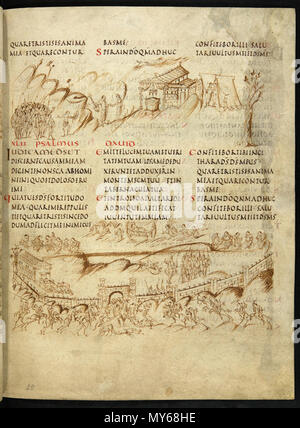 QUARETRISTISESANIMA
MEAETQUARECONTUR
BASME;
SPERAINDOQMADHUC
CONFITEBORILLISALU
TARIUULTUSMEIETDSMS
XLII PSALMUS DAVID
IUDICAMEDSET
DISCERNECAUSAMMEAM
DEGENTENONSCAABHOMI
NEINIQUOETDOLOSOERU
EME
QUIATUESDSFORTITUDO
MEAQUAREMEREPPULIS
TIETQUARETRISTISINCEDO
DUMADFLIGITMEINIMICUS
EMITTELUCEMTUAMETUERI
TATEMTUAMIPSAMEDEDU
XERUNTETADDUXERIN
MONTEMSCMTUUETIN
TABERNACULATUA
ETINTROIBOADALTAREDI
ADDMQUILAETIFICAT
IUUENTUTEMMEAM
CONFITEBORTIBIIN
CITHARADSDSMEUS
QUARETRISTISESANIMA
MEAETQUARECONTUR
BASME
SPERAINDOQMADHUC
CONFITEBORILLISALU
TARIUULTUSMEIETDSMS
alamy
Image ID: MY68HE
www.alamy.com